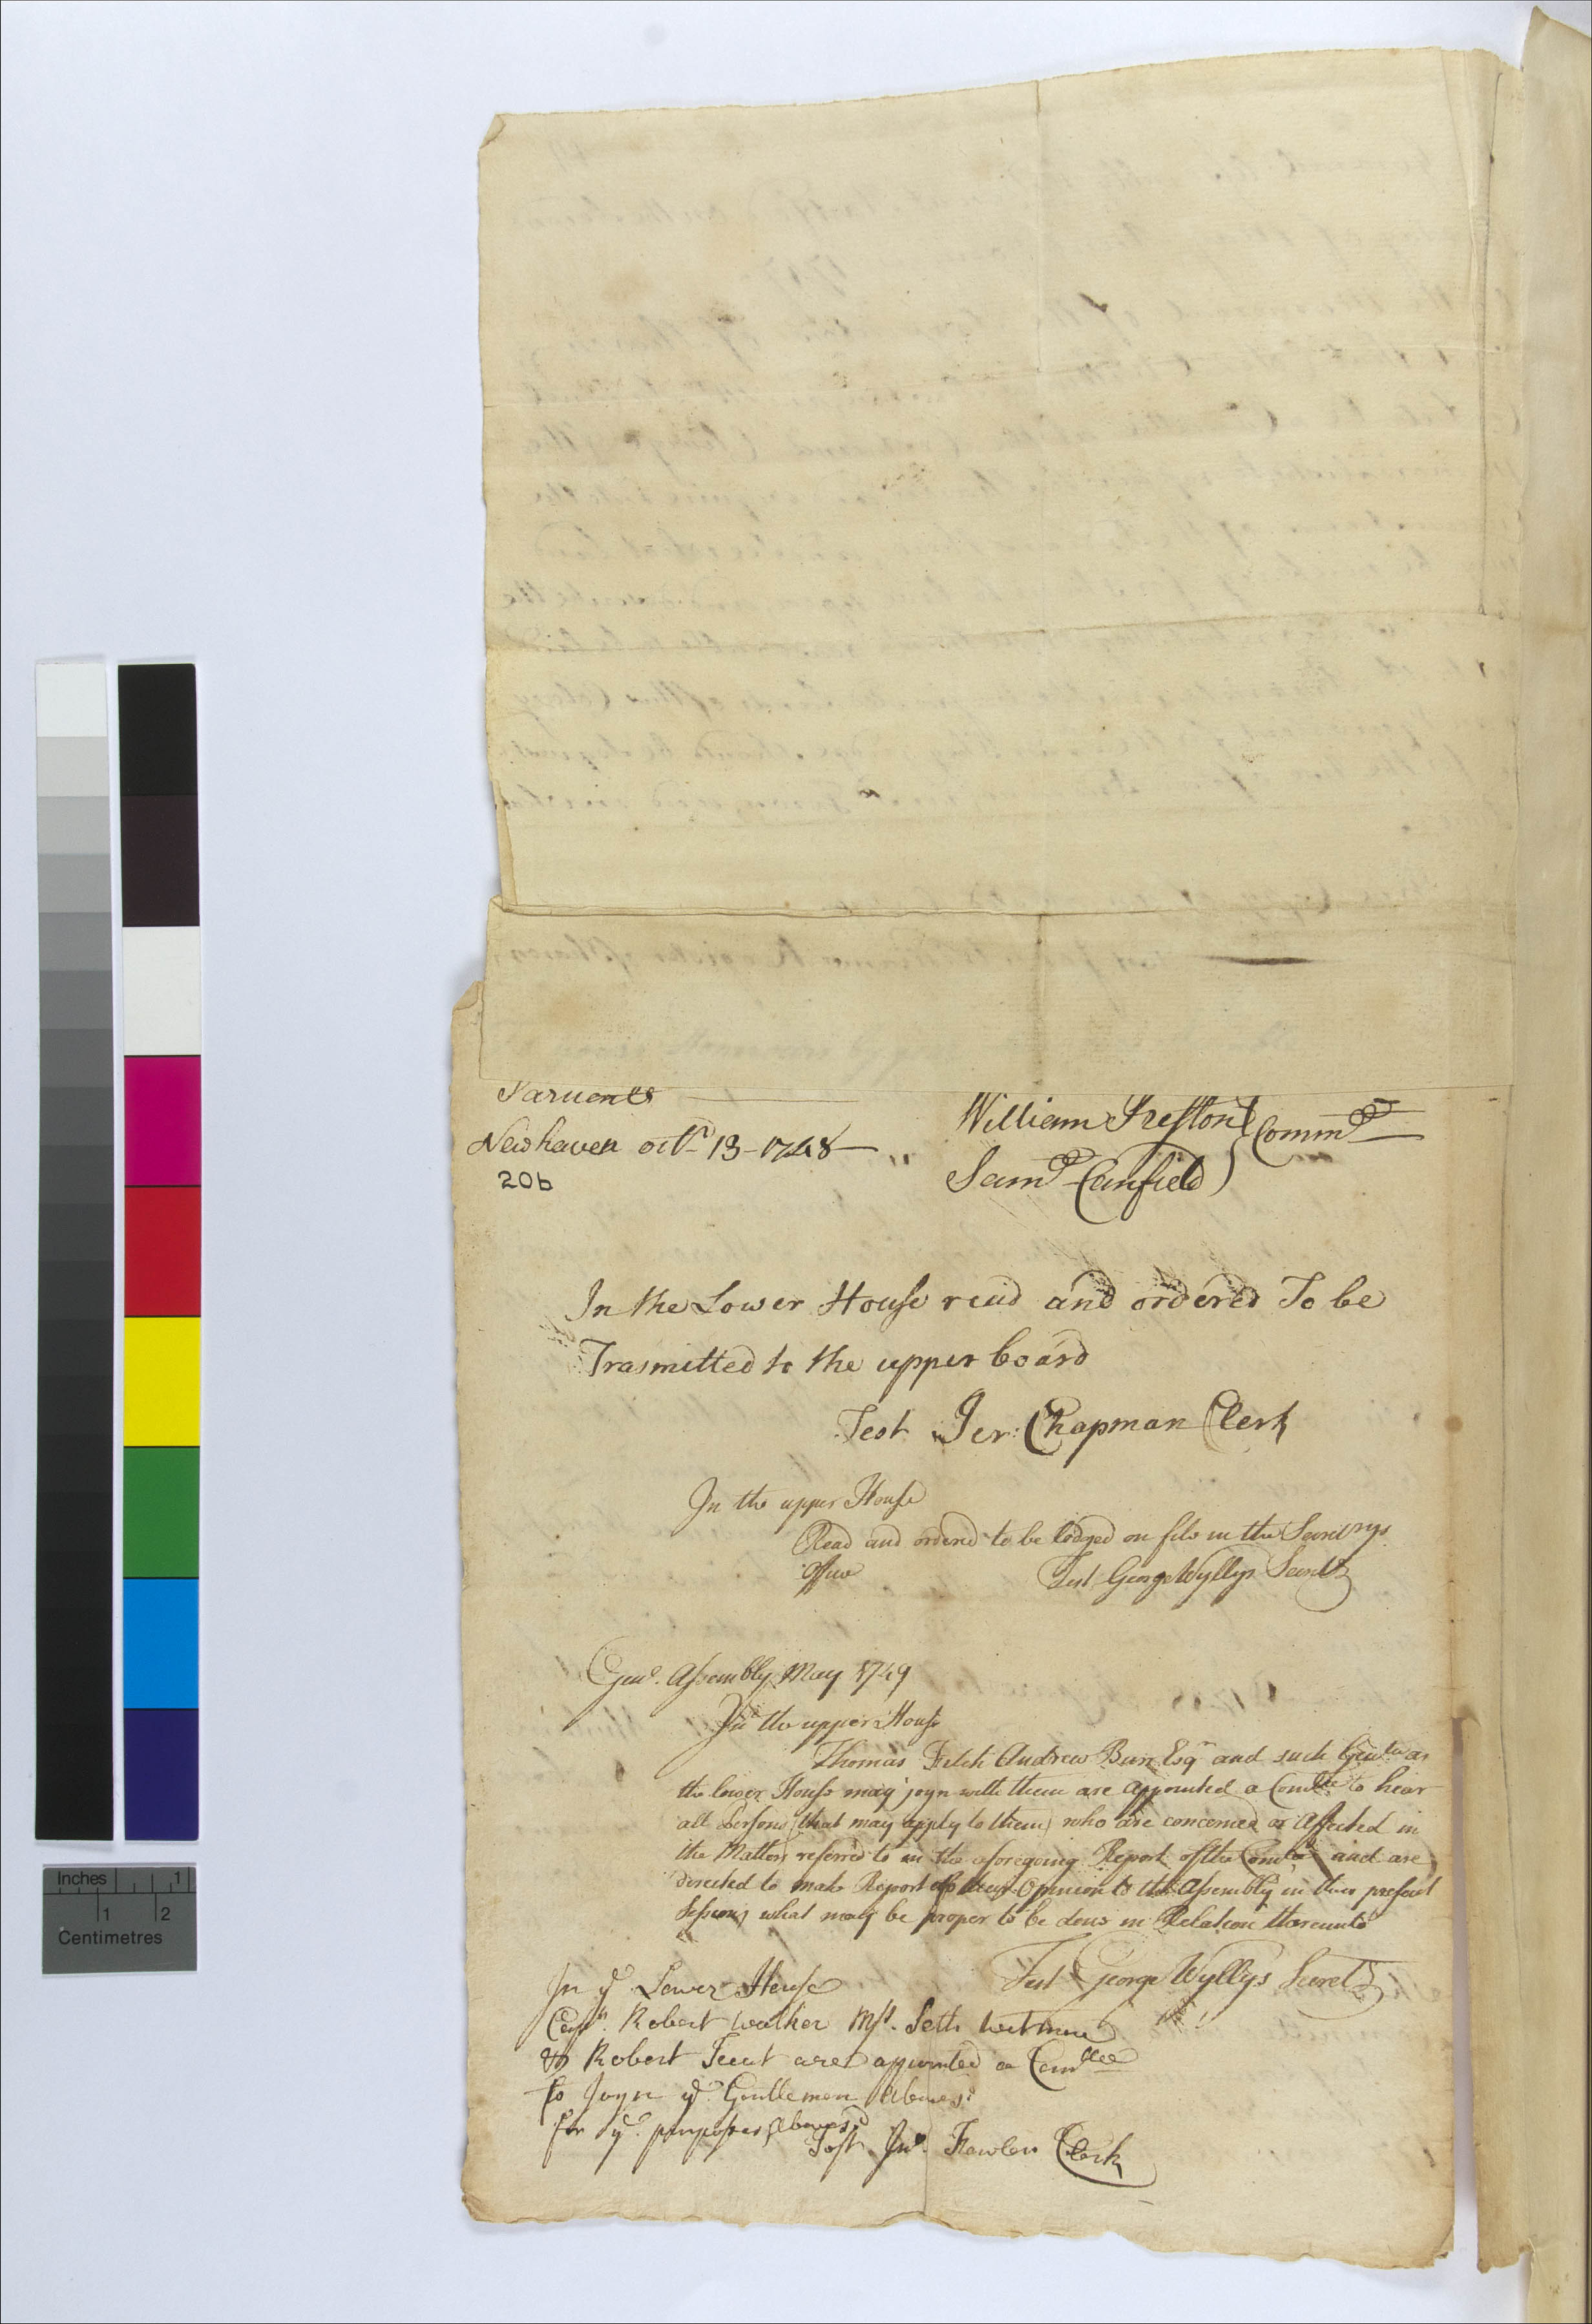 Saruents
Newhaven octr 13 - 1748
William Preston
Commtt
Saml Canfield
20b
In the Lower House read and ordered To be
Trasmitted to the upper board
Test Jer: Chapman Clerk
In the upper House
Read and ordered to be lodged on file in the Secretrys
office
Test George Wyllys Secretry
Genl. Assembly May 1749
In the upper House
Thomas Fitch Andrew Burr Esqrs and such Gentn as
the lower House may joyn with them are appointed a Comtee to hear
all Persons (that may apply to them) who are concerned or Affected in
the Matters referrd to in the aforegoing Report of the Comtee and are
directed to make Report of their Opinion to this Assembly in their present
Sessions what may be proper to be done in Relation thereunto
Test George Wyllys Secretry
In ye Lower House
Capn Robert Walker Mrs. Seth Wetmore
& Robert Treat are appointed a Comtee
to Joyn ye Gentlemen Aboves.d
for ye purposes aboves.d
Test Jno. Fowler Clerk
Inches 1
1 2
Centimetres